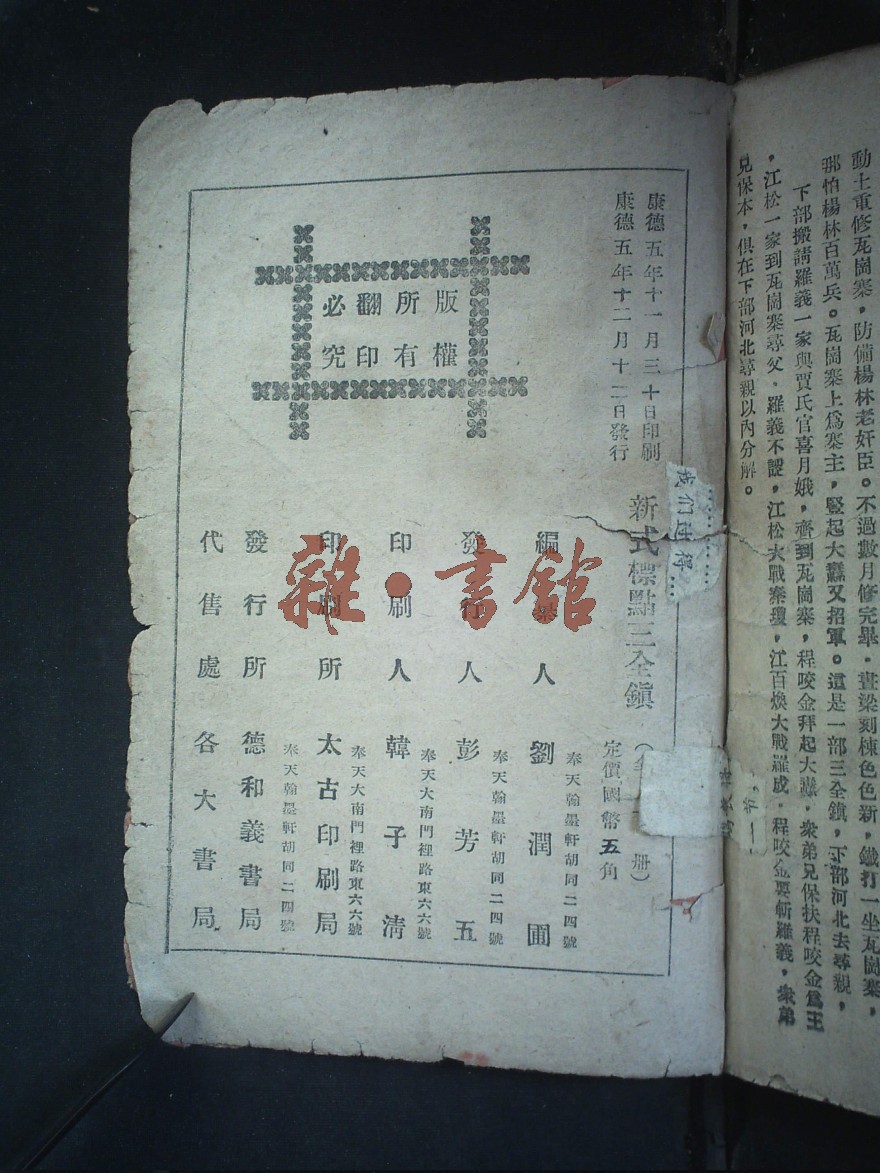 動土重修瓦崗寨，防備楊林老奸臣。不過數月修完畢．畫梁刻棟色色新，鐵打一坐瓦崗寨，
那怕楊林百萬兵。瓦崗寨上爲寨主，豎起大纛又招軍。這是一部三全鎭，下部河北去尋親，
下部搬請羅義一家與賈氏官喜月娥，齊到瓦崗寨，程咬金拜起大纛，衆弟兄保扶程咬金爲王
，江松一家到瓦崗寨尋父．羅義不認，江松大戰秦瓊，江百煥大戰羅成．程咬金要斬羅義，衆弟
兄保本，俱在下部河北尋親以內分解。
康德五年十一月三十日印刷
康德五年十二月十二日發行
版權
所有
翻印
必究
我们过得…
新式標點三全鎭（全 册）
定價國幣五角
奉天翰墨軒胡同二四號
編 人 劉潤圃
奉天翰墨軒胡同二四號
發行人 彭芳五
奉天大南門裡路東六六號
印刷人 韓子清
奉天大南門裡路東六六號
印刷所 太古印刷局
奉天翰墨軒胡同二四號
發行所 德和義書局
代售處 各大書局
雜·書館